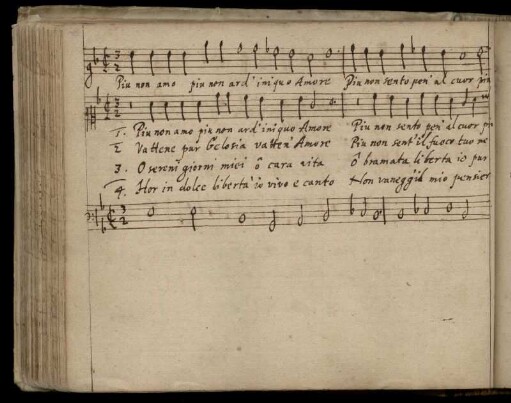 Piu non amo piu non ard' iniquo Amore Piu non sento pen' al cuor piu
1. Piu non amo piu non ard' iniquo Amore Piu non sento pen' al cuor piu
2 Vattene pur Gelosia vatten' Amore Piu non sent' il tuo ne
3. O sereni giorni miei ô cara vita ô bramata liberta io pur
4. Hor in dolce liberta io vivo e canto Non vanegg' il mio pensier